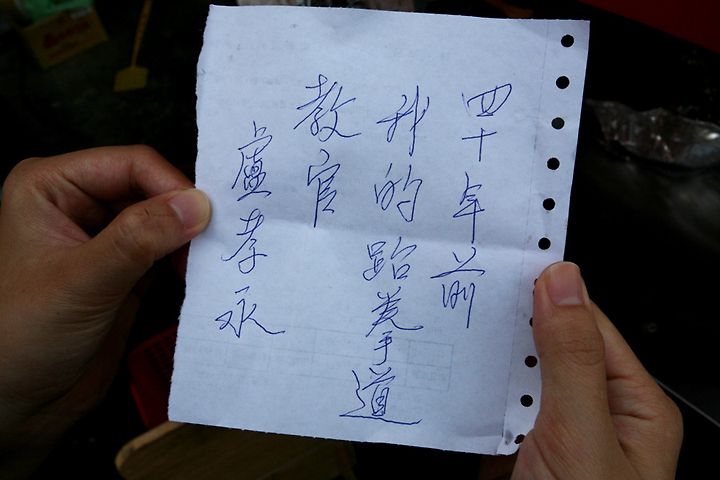 四十年前
我的跆拳道
教官
盧孝永